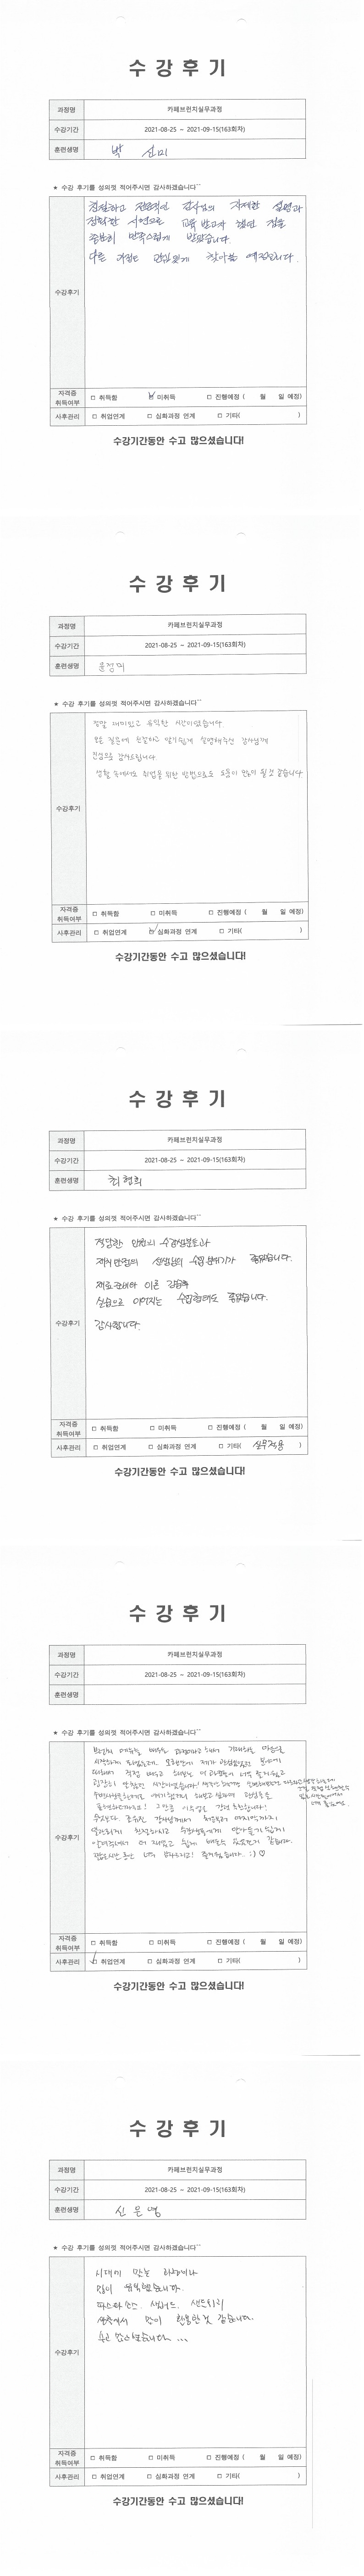 수 강 후 기
과정명 카페브런치실무과정
수강기간 2021-08-25 ~ 2021-09-15(163회차)
훈련생명 박 선미
★ 수강 후기를 성의껏 적어주시면 감사하겠습니다^^
수강후기
친절하고 전문적인 강사님의 자세한 설명과
정확한 시연으로 교육 받고자 했던 것을
충분히 만족스럽게 받았습니다.
다른 과정도 관심있게 찾아볼 예정입니다.
자격증 취득여부 □ 취득함 □ 미취득 □ 진행예정 ( 월 일 예정)
사후관리 □ 취업연계 □ 심화과정 연계 □ 기타( )
수강기간동안 수고 많으셨습니다!
수 강 후 기
과정명 카페브런치실무과정
수강기간 2021-08-25 ~ 2021-09-15(163회차)
훈련생명
★ 수강 후기를 성의껏 적어주시면 감사하겠습니다^^
수강후기
정말 재미있고 유익한 시간이었습니다
모든 질문에 친절하고 알기쉽게 설명해주신 강사님께
진심으로 감사드립니다.
생활 속에서도 취업을 위한 방법으로도 도움이 많이 될 것 같습니다
자격증 취득여부 □ 취득함 □ 미취득 □ 진행예정 ( 월 일 예정)
사후관리 □ 취업연계 □ 심화과정 연계 □ 기타( )
수강기간동안 수고 많으셨습니다!
수 강 후 기
과정명 카페브런치실무과정
수강기간 2021-08-25 ~ 2021-09-15(163회차)
훈련생명 최형희
★ 수강 후기를 성의껏 적어주시면 감사하겠습니다^^
수강후기
적당한 인원의 수강생분들과
지식만점의 선생님의 수업분위기가 좋았습니다.
재료준비와 이론
실습으로 이어지는 수업형태도 좋았습니다.
감사합니다.
자격증 취득여부 □ 취득함 □ 미취득 □ 진행예정 ( 월 일 예정)
사후관리 □ 취업연계 □ 심화과정 연계 □ 기타( 실무적용 )
수강기간동안 수고 많으셨습니다!
수 강 후 기
과정명 카페브런치실무과정
수강기간 2021-08-25 ~ 2021-09-15(163회차)
훈련생명
★ 수강 후기를 성의껏 적어주시면 감사하겠습니다^^
수강후기
브런치 메뉴를 배우는 과정이라고 해서 기대하는 마음으로
시작하게 되었는데, 오랜만에 제가 관심있었던 분야에
대해서 직접 배우고 해보는 이 과정들이 너무 즐거웠고
굉장히 알찼던 시간이었습니다!
추천하고싶은
처음부터 마지막까지
친절하시고 수강생들에게
알려주셔서 더 재밌고 쉽게 배울수 있었던거 같습니다.
너무 즐거웠습니다. :) ♡
자격증 취득여부 □ 취득함 □ 미취득 □ 진행예정 ( 월 일 예정)
사후관리 □ 취업연계 □ 심화과정 연계 □ 기타( )
수강기간동안 수고 많으셨습니다!
수 강 후 기
과정명 카페브런치실무과정
수강기간 2021-08-25 ~ 2021-09-15(163회차)
훈련생명 신 은
★ 수강 후기를 성의껏 적어주시면 감사하겠습니다^^
수강후기
시대에 맞는
많이 유익했습니다.
파스타 소스, 샐러드, 샌드위치
생활에서 많이 활용할것 같습니다.
자격증 취득여부 □ 취득함 □ 미취득 □ 진행예정 ( 월 일 예정)
사후관리 □ 취업연계 □ 심화과정 연계 □ 기타( )
수강기간동안 수고 많으셨습니다!